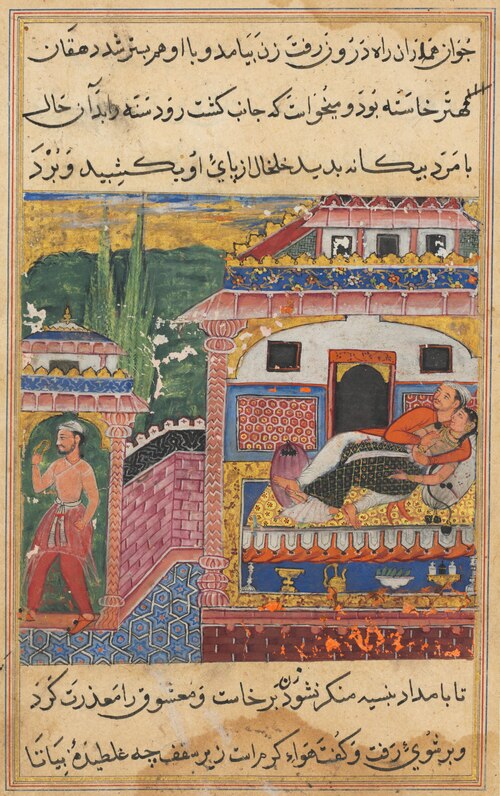 جوان هم از ان راه درون رفت زن بیامد و با او هم بستر شد دهقان
مهتر خاسته بود و میخواست که جانب کشت رود سنه را بدان حال
با مرد بیکانه بدید خلخال از پای او بکشید و ببرد
تا بامداد بنسیه منکر نشود زن برخاست و معشوق را معذرت کرد
و بر شوی رفت و کفت هواء کرم است زیر سقف چه غلطیدهٔ بیا تا